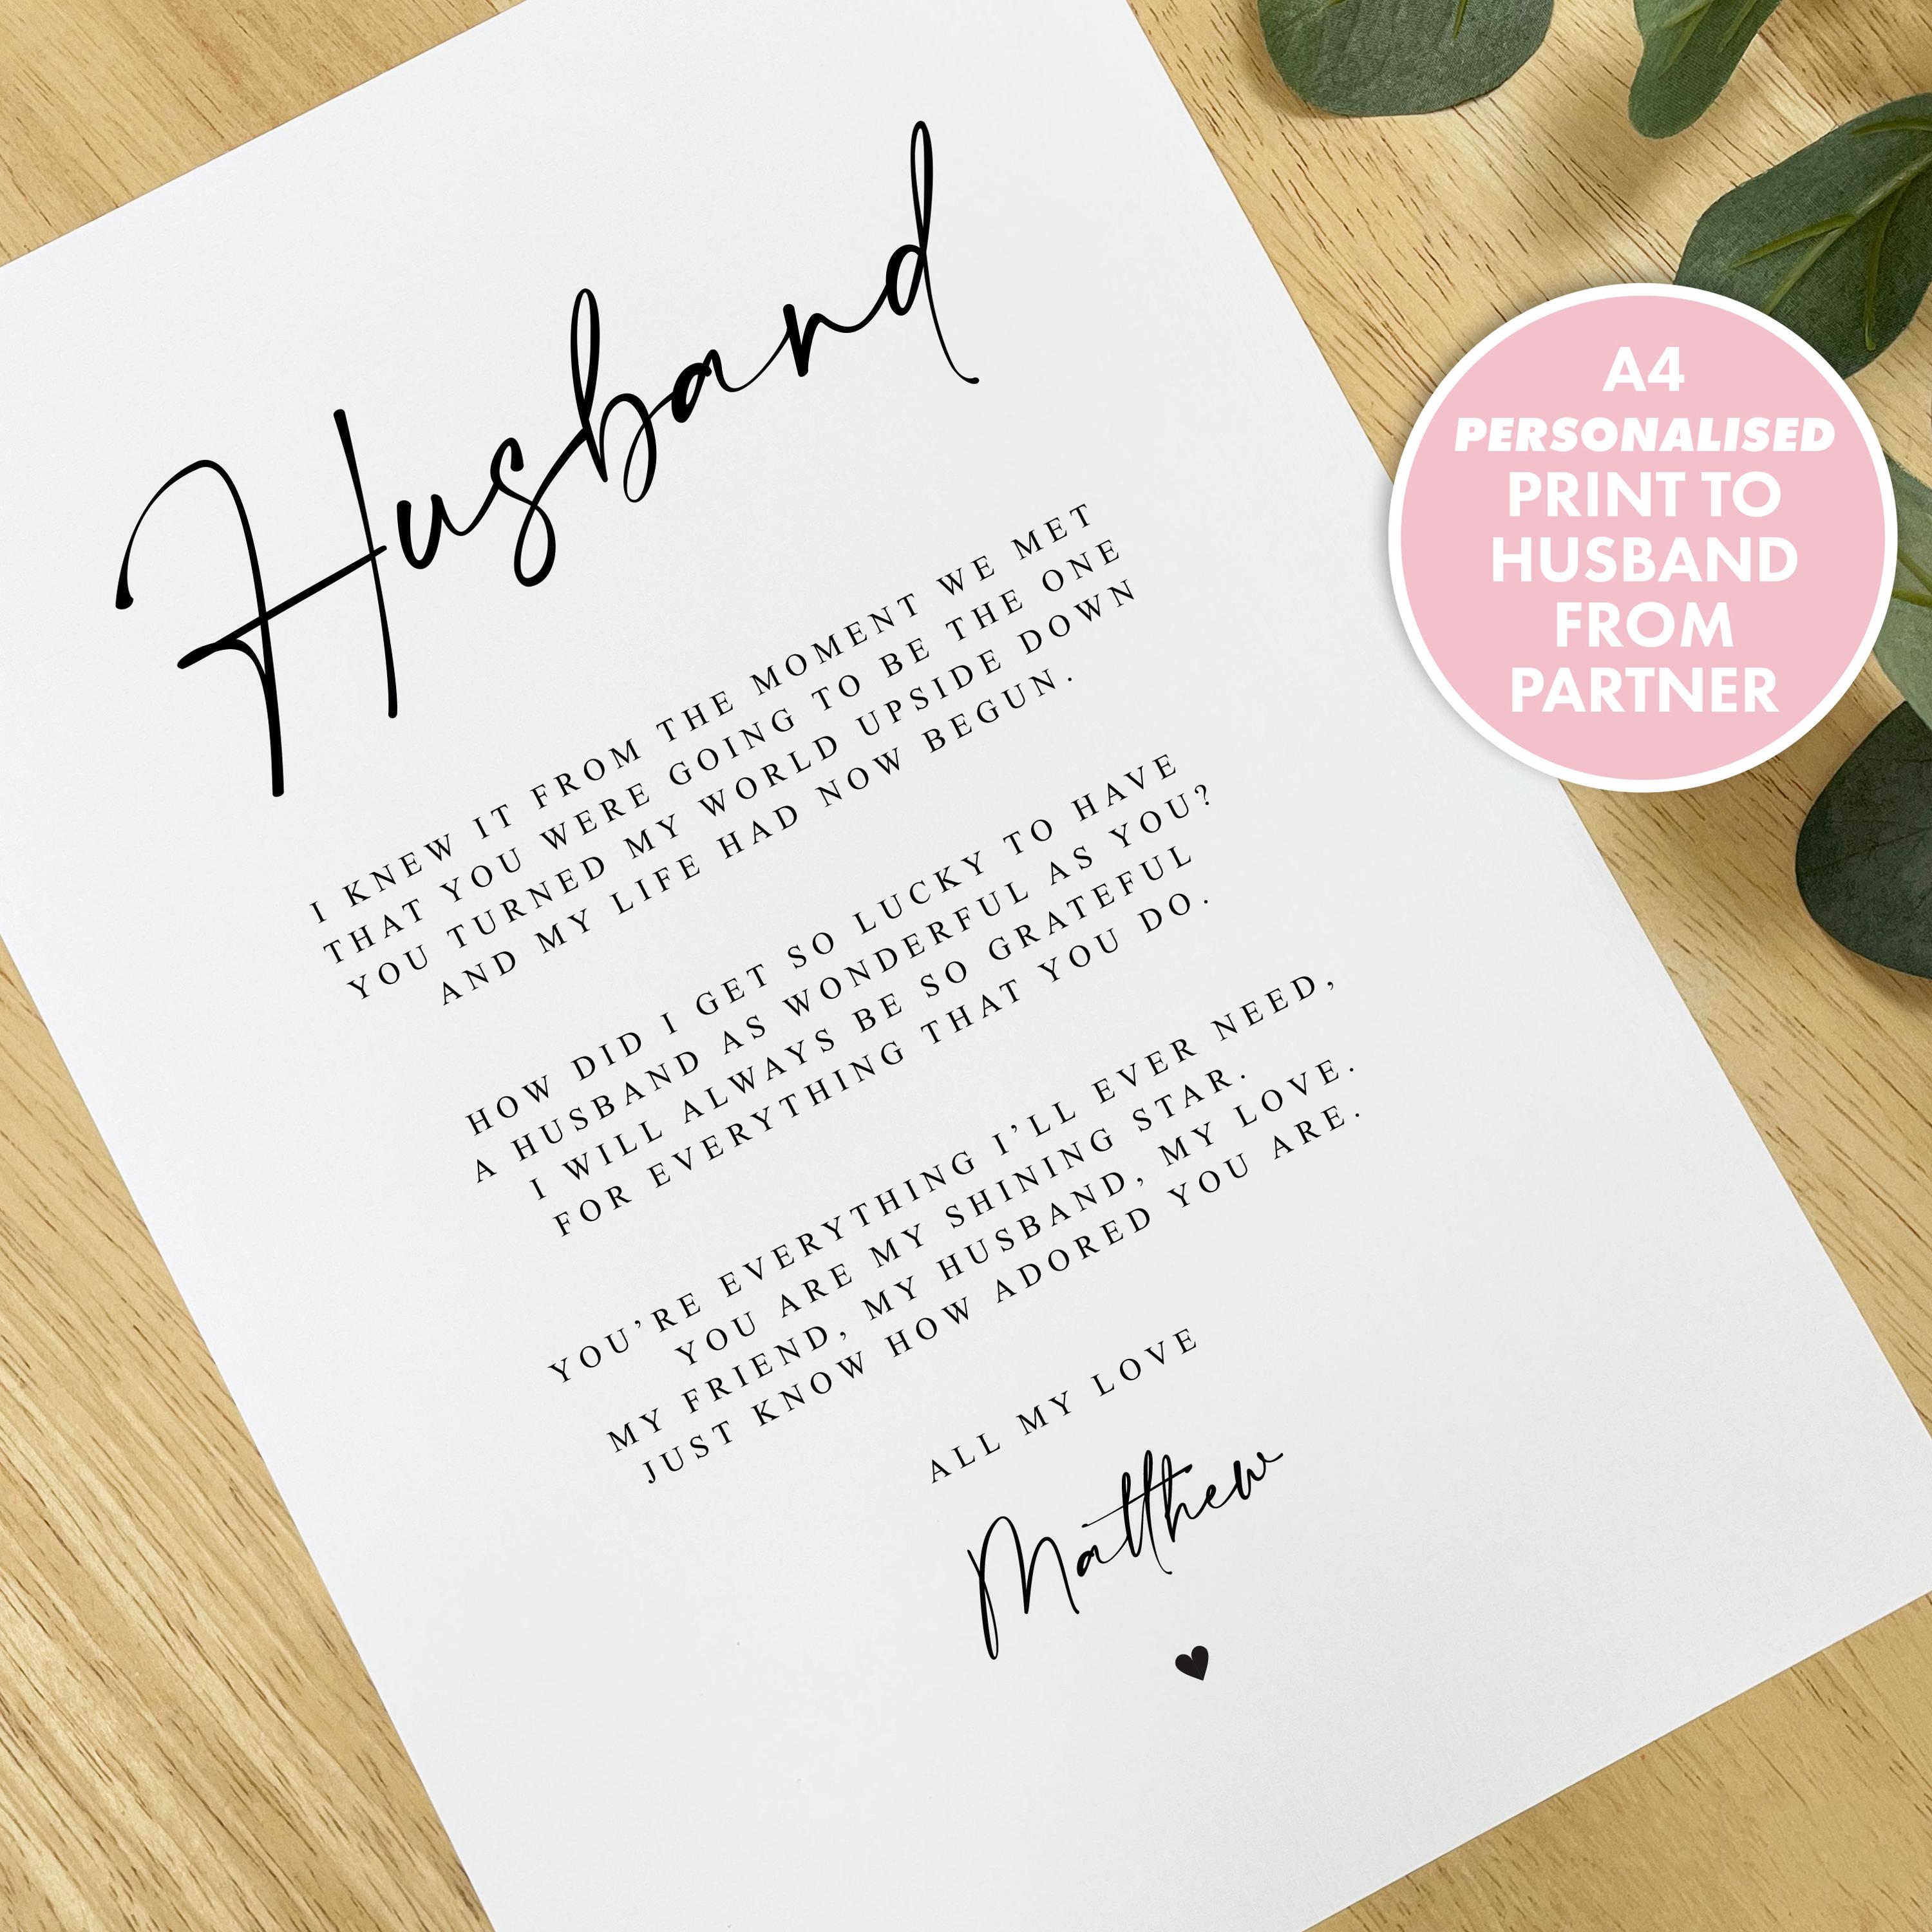 Husband
I KNEW IT FROM THE MOMENT WE MET
THAT YOU WERE GOING TO BE THE ONE
YOU TURNED MY WORLD UPSIDE DOWN
AND MY LIFE HAD NOW BEGUN.
HOW DID I GET SO LUCKY TO HAVE
A HUSBAND AS WONDERFUL AS YOU?
I WILL ALWAYS BE SO GRATEFUL
FOR EVERYTHING THAT YOU DO.
YOU’RE EVERYTHING I’LL EVER NEED,
YOU ARE MY SHINING STAR.
MY FRIEND, MY HUSBAND, MY LOVE.
JUST KNOW HOW ADORED YOU ARE.
ALL MY LOVE
Matthew
A4
PERSONALISED
PRINT TO
HUSBAND
FROM
PARTNER